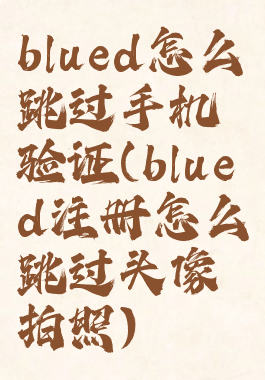 blued怎么
跳过手机
验证(blue
d注册怎么
跳过头像
拍照)